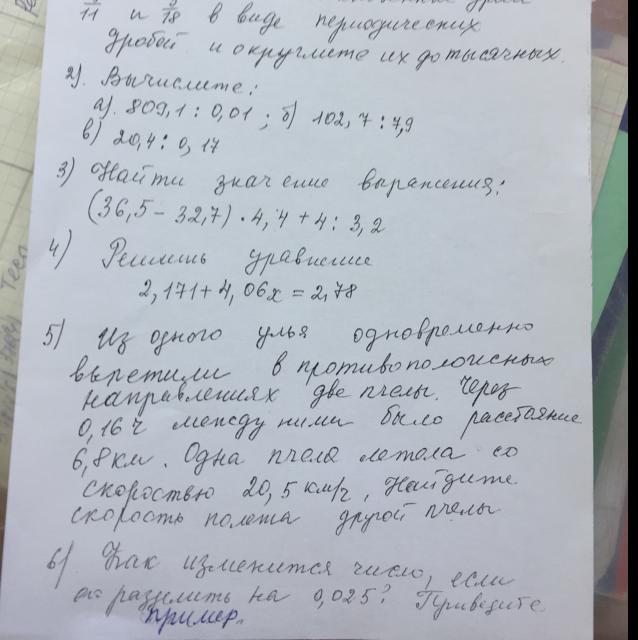 11 и 18 в виде периодических
дробей и округлите их до тысячных.
2). Вычислите:
а). 809,1 : 0,01 ; б) 102,7 : 7,9
в) 20,4 : 0,17
3) Найти значение выражения:
(36,5 - 32,7) • 4,4 + 4 : 3,2
4) Решить уравнение
2,171 + 4,06x = 2,78
5) Из одного улья одновременно
вылетили в противоположных
направлениях две пчелы. Через
0,16 ч между ними было расстояние
6,8 км. Одна пчела летела со
скоростью 20,5 км/ч. Найдите
скорость полета другой пчелы
6) Как изменится число, если
его разделить на 0,025? Приведите
пример.